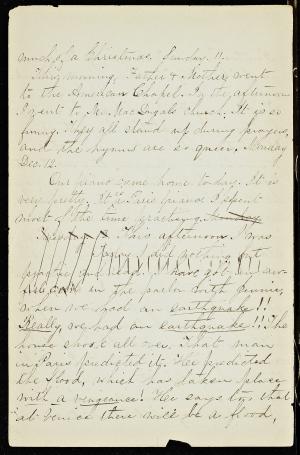 much of a Christmas. Sunday. 11.
This morning, Father & Mother went
to the American Chapel. In the afternoon
I went to Mr. MacDugals church. It is so
funny. They all stand up during prayers,
and the hymns are so queer. Monday
Dec. 12.
Our piano came home to-day. It is
very pretty. It is a Paris piano. I spent
most of the time practising. 
This afternoon I was
have got an aw-
in the parlor with
when we had an earthquake!!
Really, we had an earthquake!!! The
house shook all over. That man
in Paris predicted it. He predicted
the flood, which has taken place
with a vengeance! He says too that
at Venice there will be a flood,